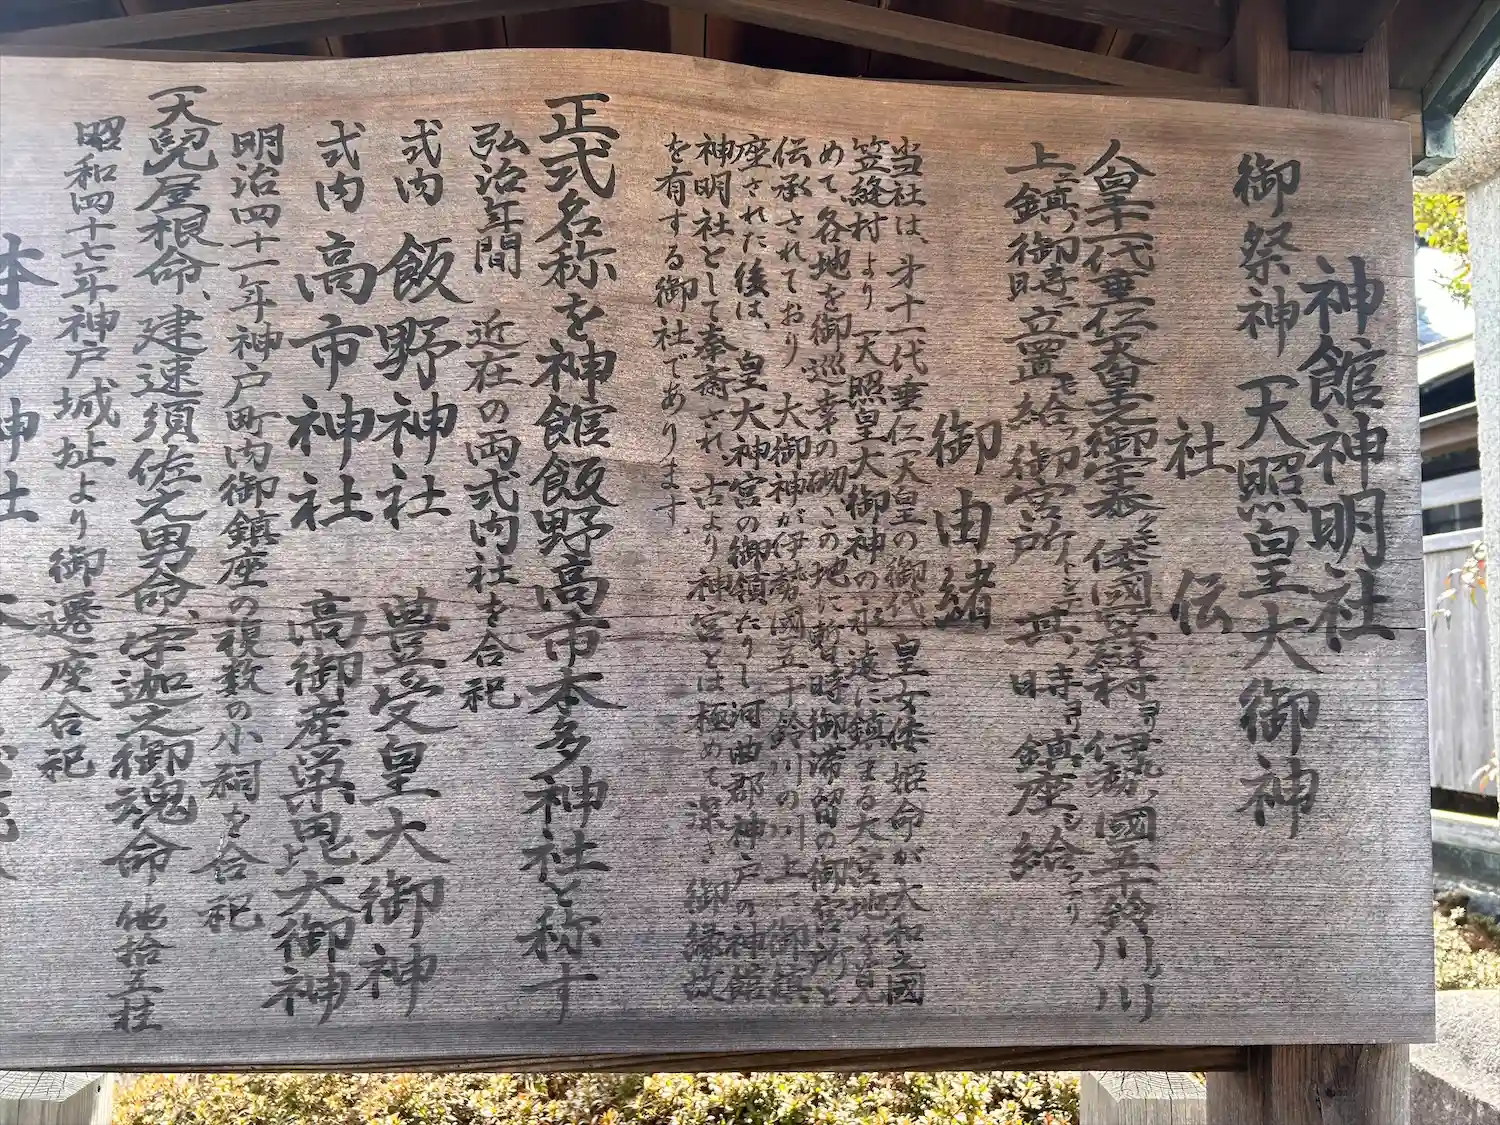 神館神明社
御祭神 天照皇大御神
社伝
人皇十一代垂仁天皇之御宇泰 倭國笠縫村ヨリ 伊勢國五十鈴川ノ川
上ニ鎮リ御寺ニ立置キ給フ御宮所トシ 其ノ時ヨリ鎮座シ給
御由緒
当社は、才十一代垂仁天皇の御代、皇女倭姫命が大和之國
笠縫村より天照皇大御神の永遠に鎮まる大宮地を見
めて、各地を御巡幸の砌、この地に暫時御滞留の御宮所と
伝承されており 大御神が伊勢國五十鈴川の川上に御鎮
座された後は、皇大神宮の御領たりし河曲郡神戸の神館
神明社として奉斎され、古より神宮とは極めて深き御縁故
を有する御社であります。
正式名称を神館飯野高市本多神社と称す
弘治年間 近在の両式内社を合祀
式内 飯野神社 豊受皇大御神
式内 高市神社 高御産巣昆大御神
明治四十一年神戸町内御鎮座の複数の小祠を合祀
天兒屋根命、建速須佐之男命、宇迦之御魂命 他拾五柱
昭和四十七年神戸城址より御遷座合祀
本多神社